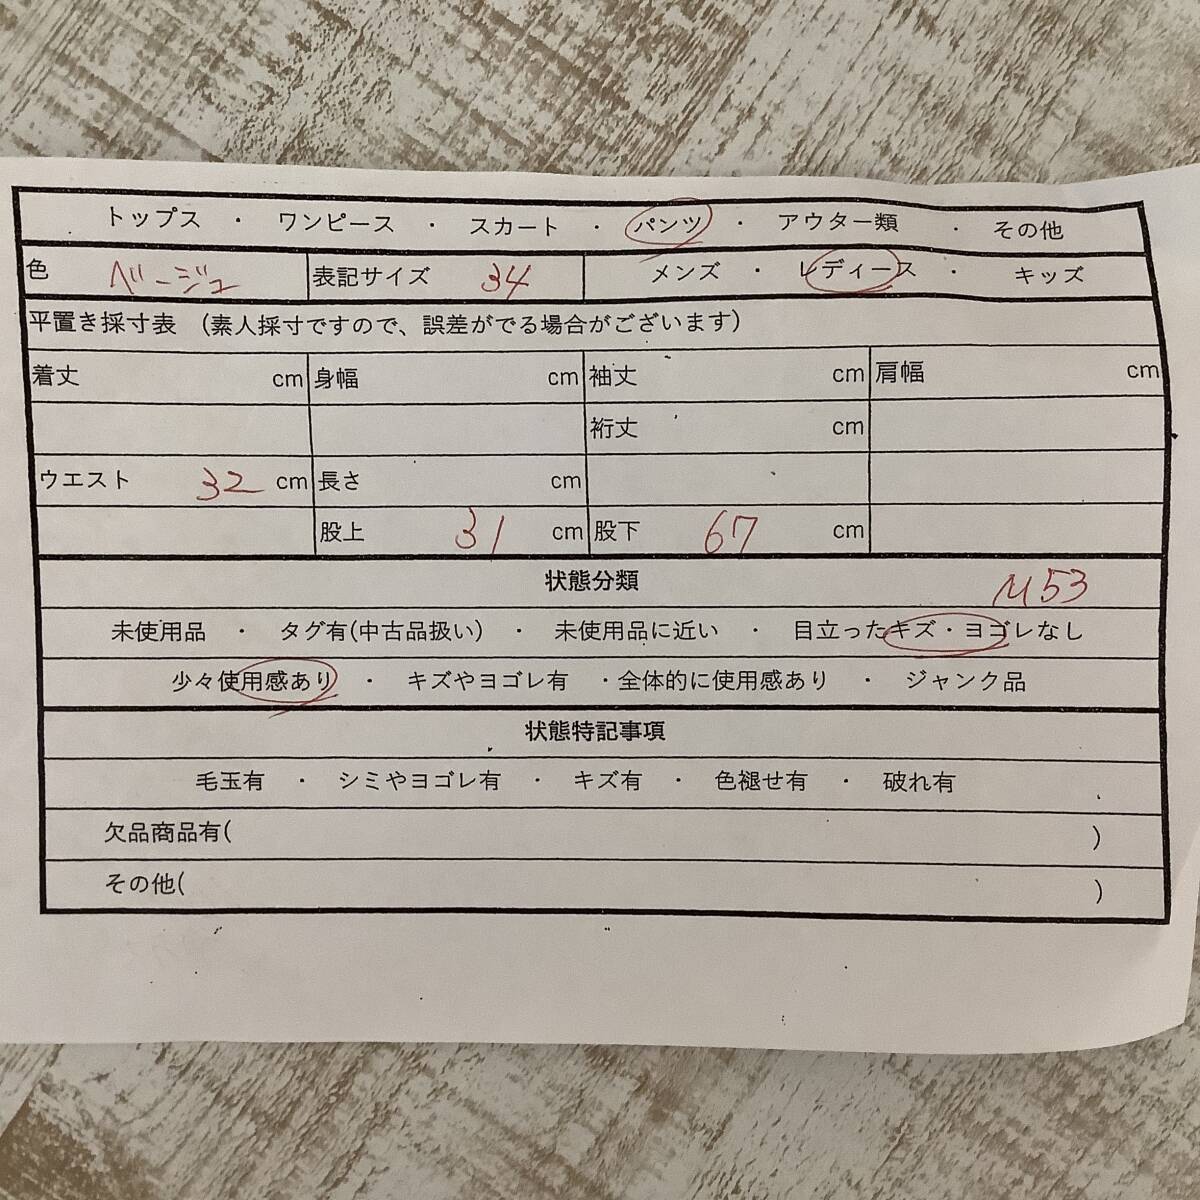 トップス ・ ワンピース ・ スカート ・ パンツ ・ アウター類 ・ その他
色 ベージュ 表記サイズ 34 メンズ ・ レディース ・ キッズ
平置き採寸表 (素人採寸ですので、誤差がでる場合がございます)
着丈 cm 身幅 cm 袖丈 cm 肩幅 cm
裄丈 cm
ウエスト 32 cm 長さ cm
股上 31 cm 股下 67 cm
状態分類 M53
未使用品 ・ タグ有(中古品扱い) ・ 未使用品に近い ・ 目立ったキズ・ヨゴレなし
少々使用感あり ・ キズやヨゴレ有 ・全体的に使用感あり ・ ジャンク品
状態特記事項
毛玉有 ・ シミやヨゴレ有 ・ キズ有 ・ 色褪せ有 ・ 破れ有
欠品商品有( )
その他( )